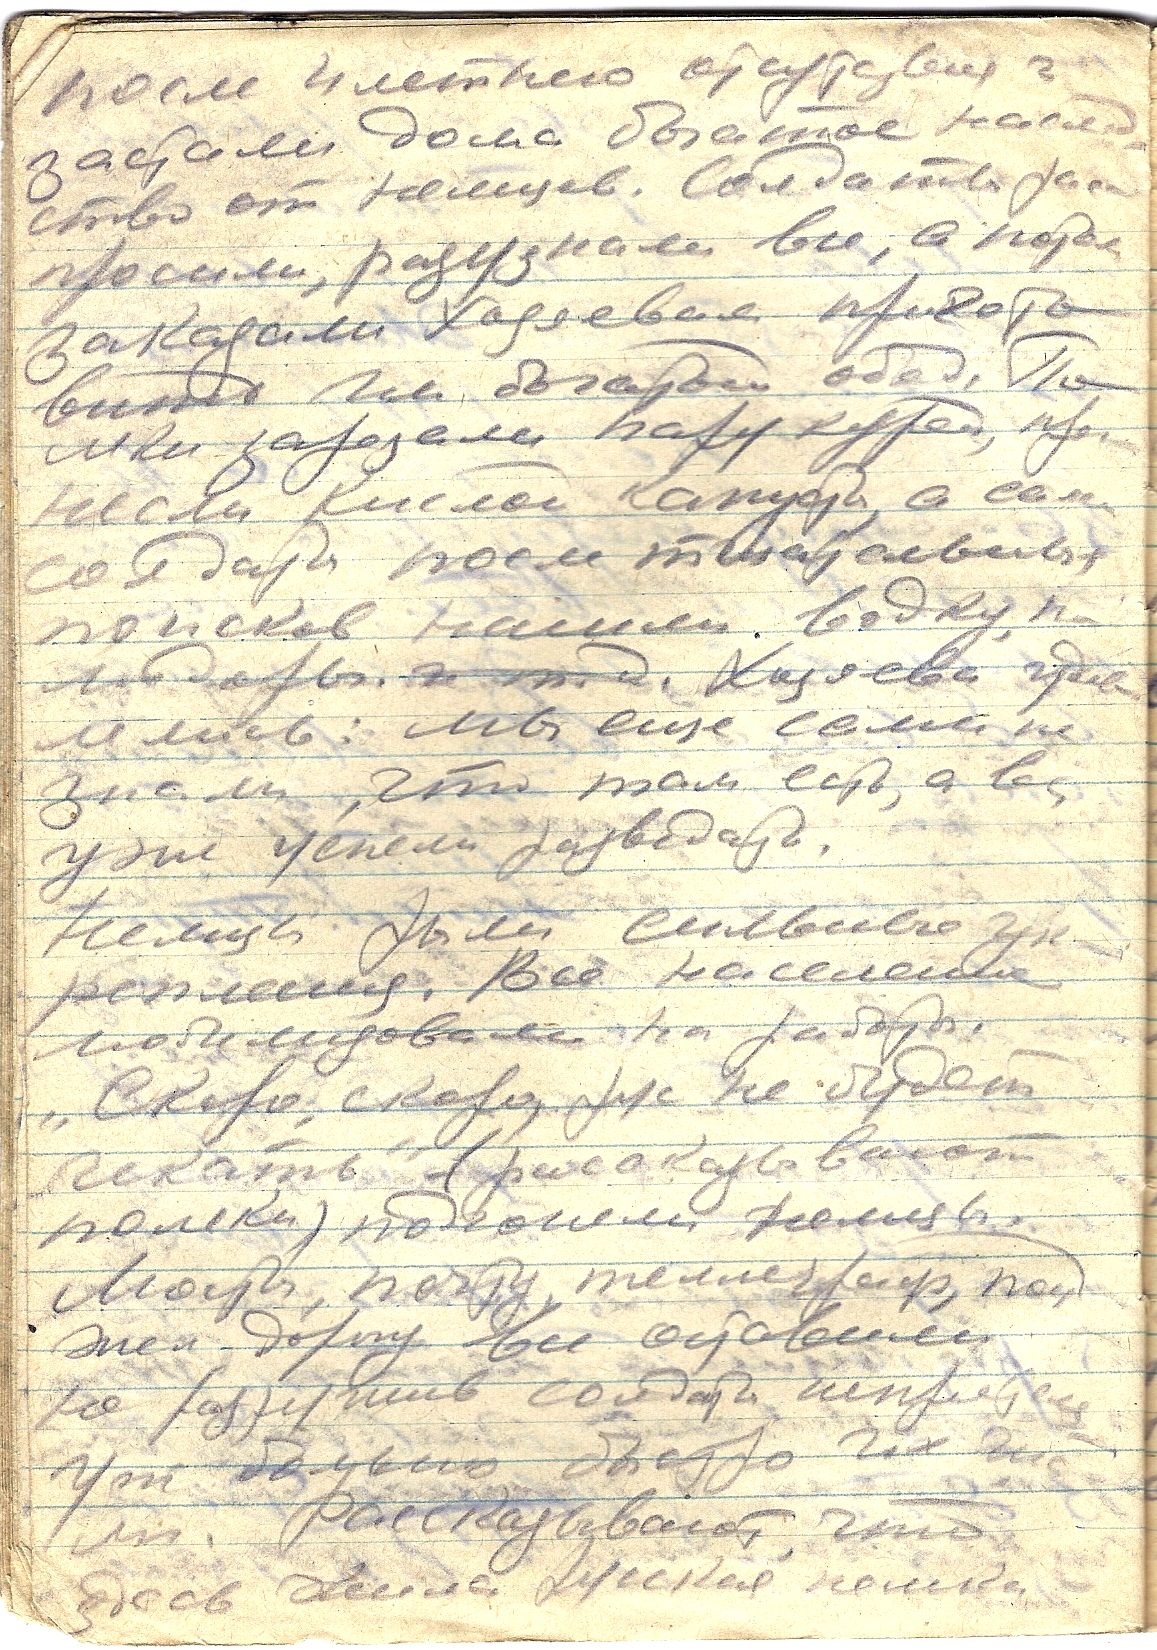 после 4 летнего отсутствия и
застали дома богатое наслед
ство от немцев. Солдаты рас
просили, разузнали все, а потом
заказали хозяевам пригото
вить им богатый обед. По
ляки зарезали пару курей, при
несли кислой капусты, а сами
солдаты после тщательных
поисков нашли водку, по
мидоры и т.д. Хозяева удив
лялись: мы еще сами не
знали, что там есть, а вы
уже успели разведать.
Немцы рыли сильные ук
репления. Все население
мобилизовали на работы.
"Скоро, скоро, рус не будет
чекать" (рассказывают
поляки) подгоняли немцы.
Мосты, почту, телеграф,
жел. дорогу все оставили
не разрушив солдаты неприятеля
уж больно быстро их гна
ли. Рассказывают, что
здесь жила немка